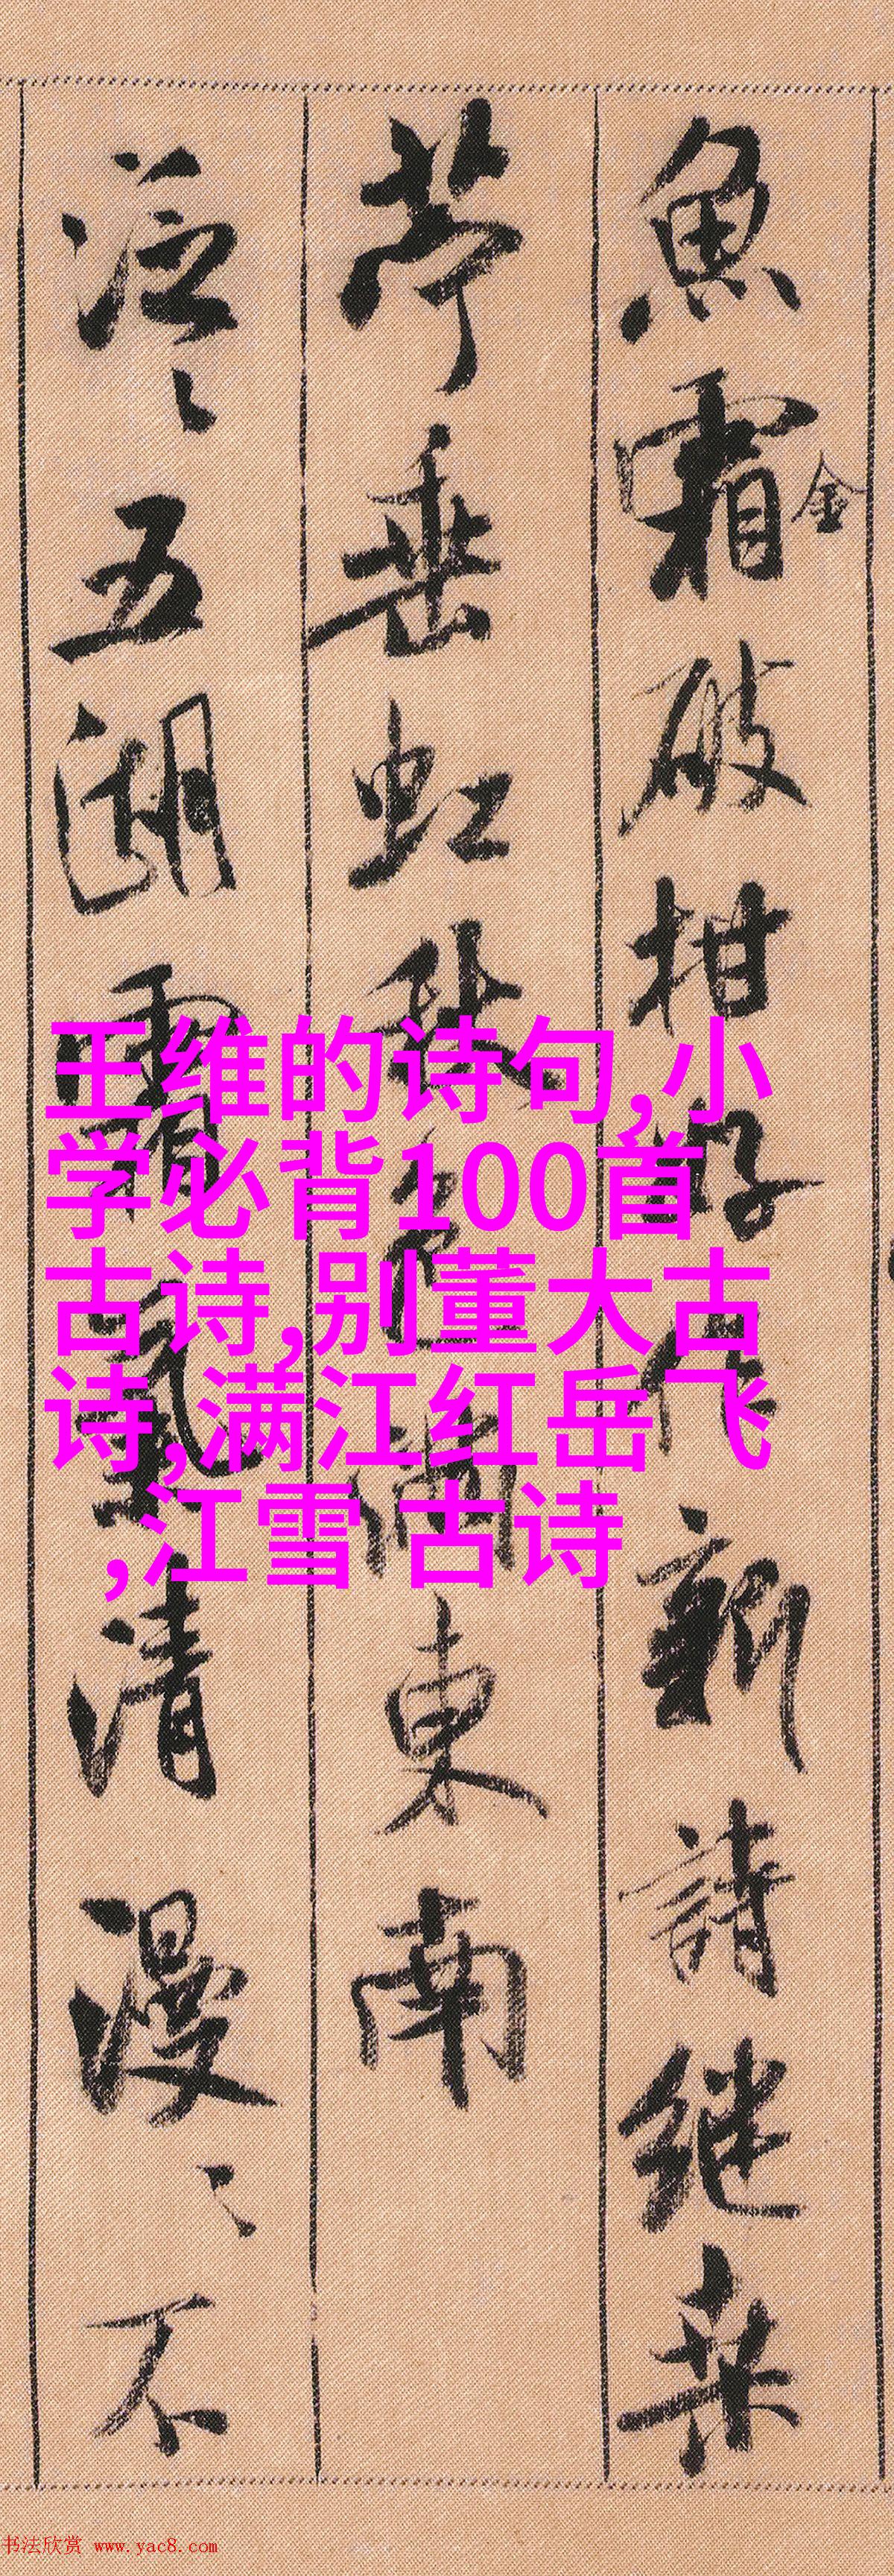 魚霜破柑好作新詩継桒
金
苧垂虹秋色滿東南
泛〻五湖霜氣清漫〻不
王维的诗句,小
学必背100首
古诗,别董大古
诗,满江红岳飞
,江雪 古诗
书法欣赏 www.yac8.com